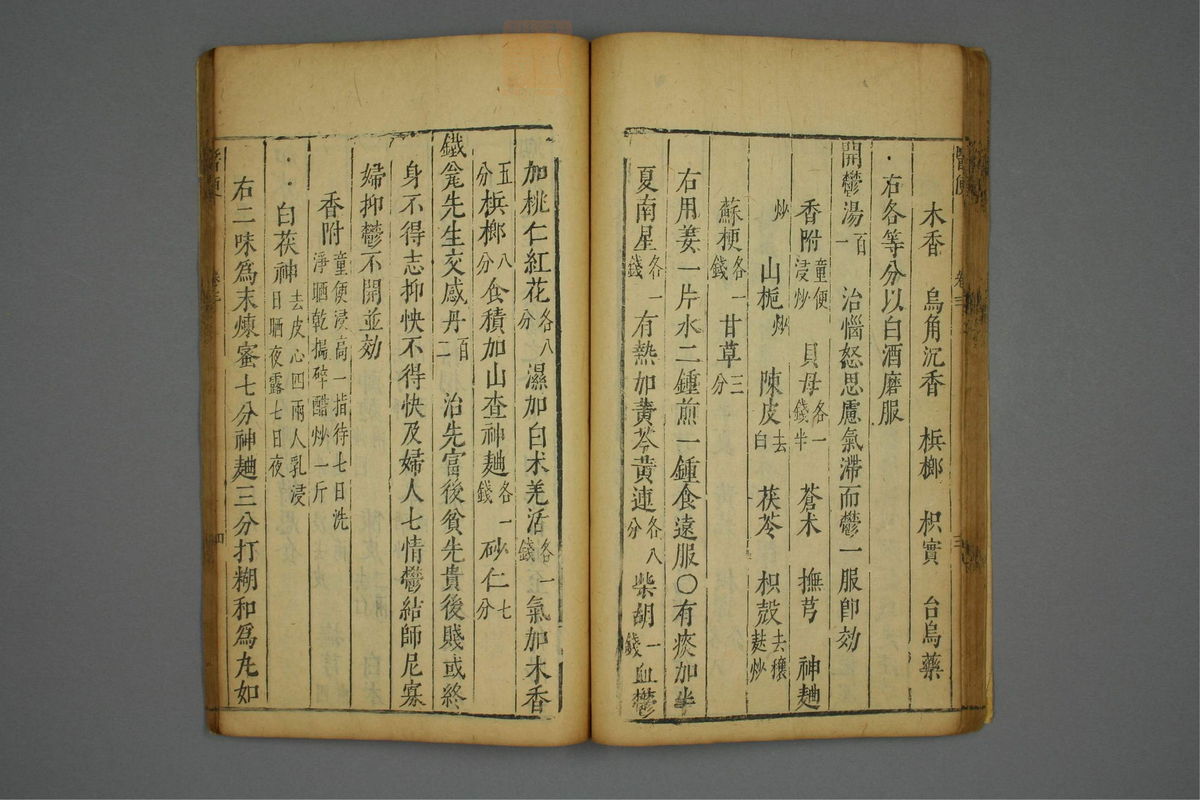 木香 烏角沉香 梹榔 枳實 台烏藥
右各等分以白酒磨服
開鬱湯百一 治惱怒思慮氣滯而鬱一服即効
香附童便浸炒 貝母各一錢半 蒼朮 撫芎 神麯
炒 山梔炒 陳皮去白 茯苓 枳殼去穰麩炒
蘇梗各一錢 甘草三分
右用姜一片水二鍾煎一鍾食遠服〇有痰加半
夏南星各一錢有熱加黃芩黃連各八分柴胡一錢血鬱
加桃仁紅花各八分濕加白朮羌活各一錢氣加木香
五分梹榔八分食積加山查神麯各一錢砂仁七分
鐵瓮先生交感丹百二 治先富後貧先貴後賤或終
身不得志抑怏不得快及婦人七情鬱結師尼寡
婦抑鬱不開並効
香附童便浸高一指待七日洗淨晒乾搗碎醋炒一斤
白茯神去皮心四兩人乳浸日晒夜露七日夜
右二味為末煉蜜七分神麯三分打糊和為丸如
醫便 卷三